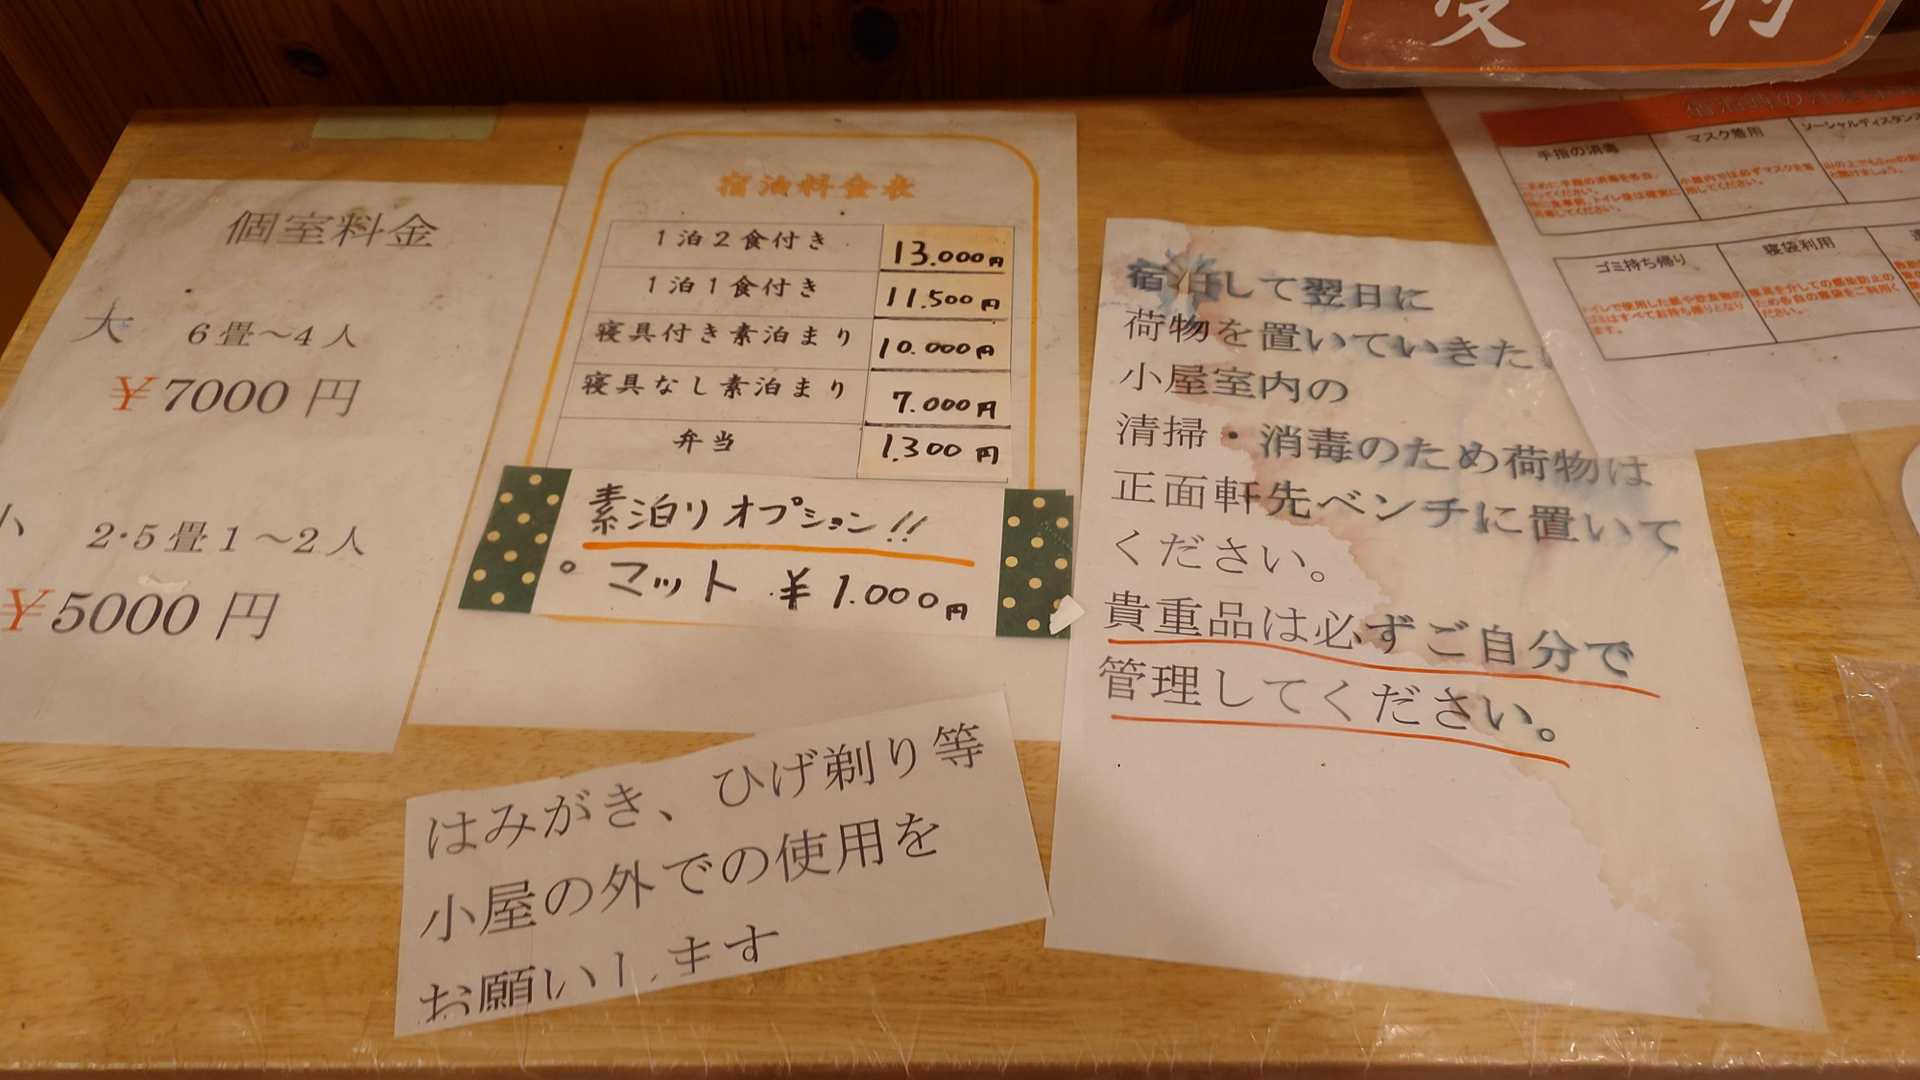 受付
個室料金
大 6畳～4人
￥7000円
小 2・5畳1～2人
￥5000円
宿泊料金表
1泊2食付き 13.000円
1泊1食付き 11.500円
寝具付き素泊まり 10.000円
寝具なし素泊まり 7.000円
弁当 1.300円
素泊りオプション!!
。マット ¥1.000円
はみがき、ひげ剃り等
小屋の外での使用を
お願いします
宿泊して翌日に
荷物を置いていきたい
小屋室内の
清掃・消毒のため荷物は
正面軒先ベンチに置いて
ください。
貴重品は必ずご自分で
管理してください。
手指の消毒
マスク着用
ソーシャルディスタンス
小屋内では必ずマスクを着
用してください。
ゴミ持ち帰り
寝袋利用